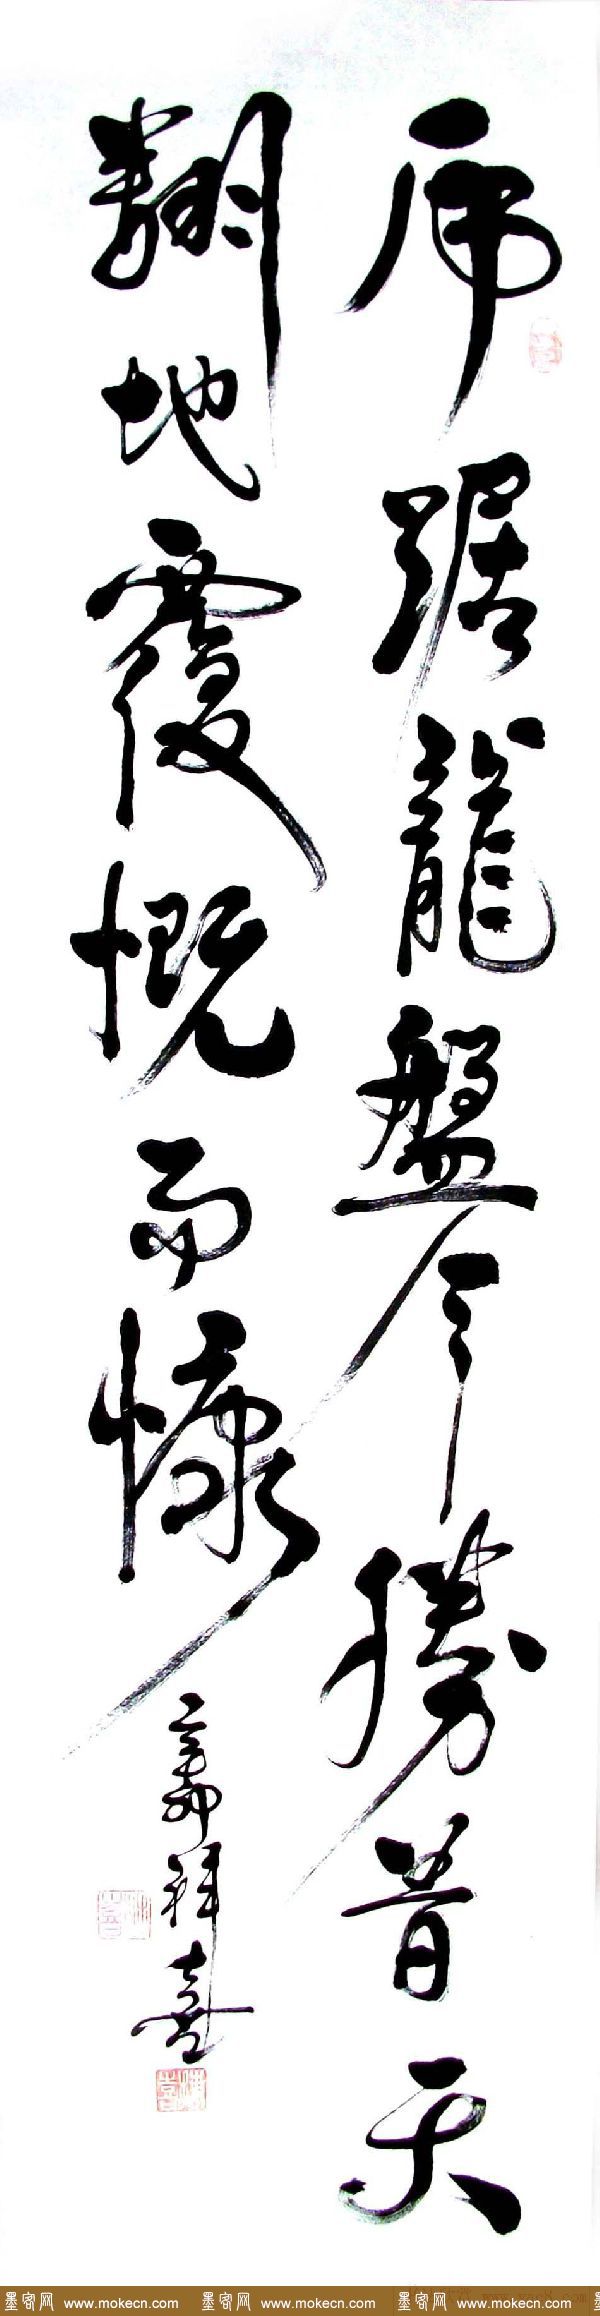 虎踞龍盤今勝昔天
翻地覆慨而慷
祥喜
墨客网 www.mokecn.com 墨客网 www.mokecn.com 墨客网 www.mokecn.com